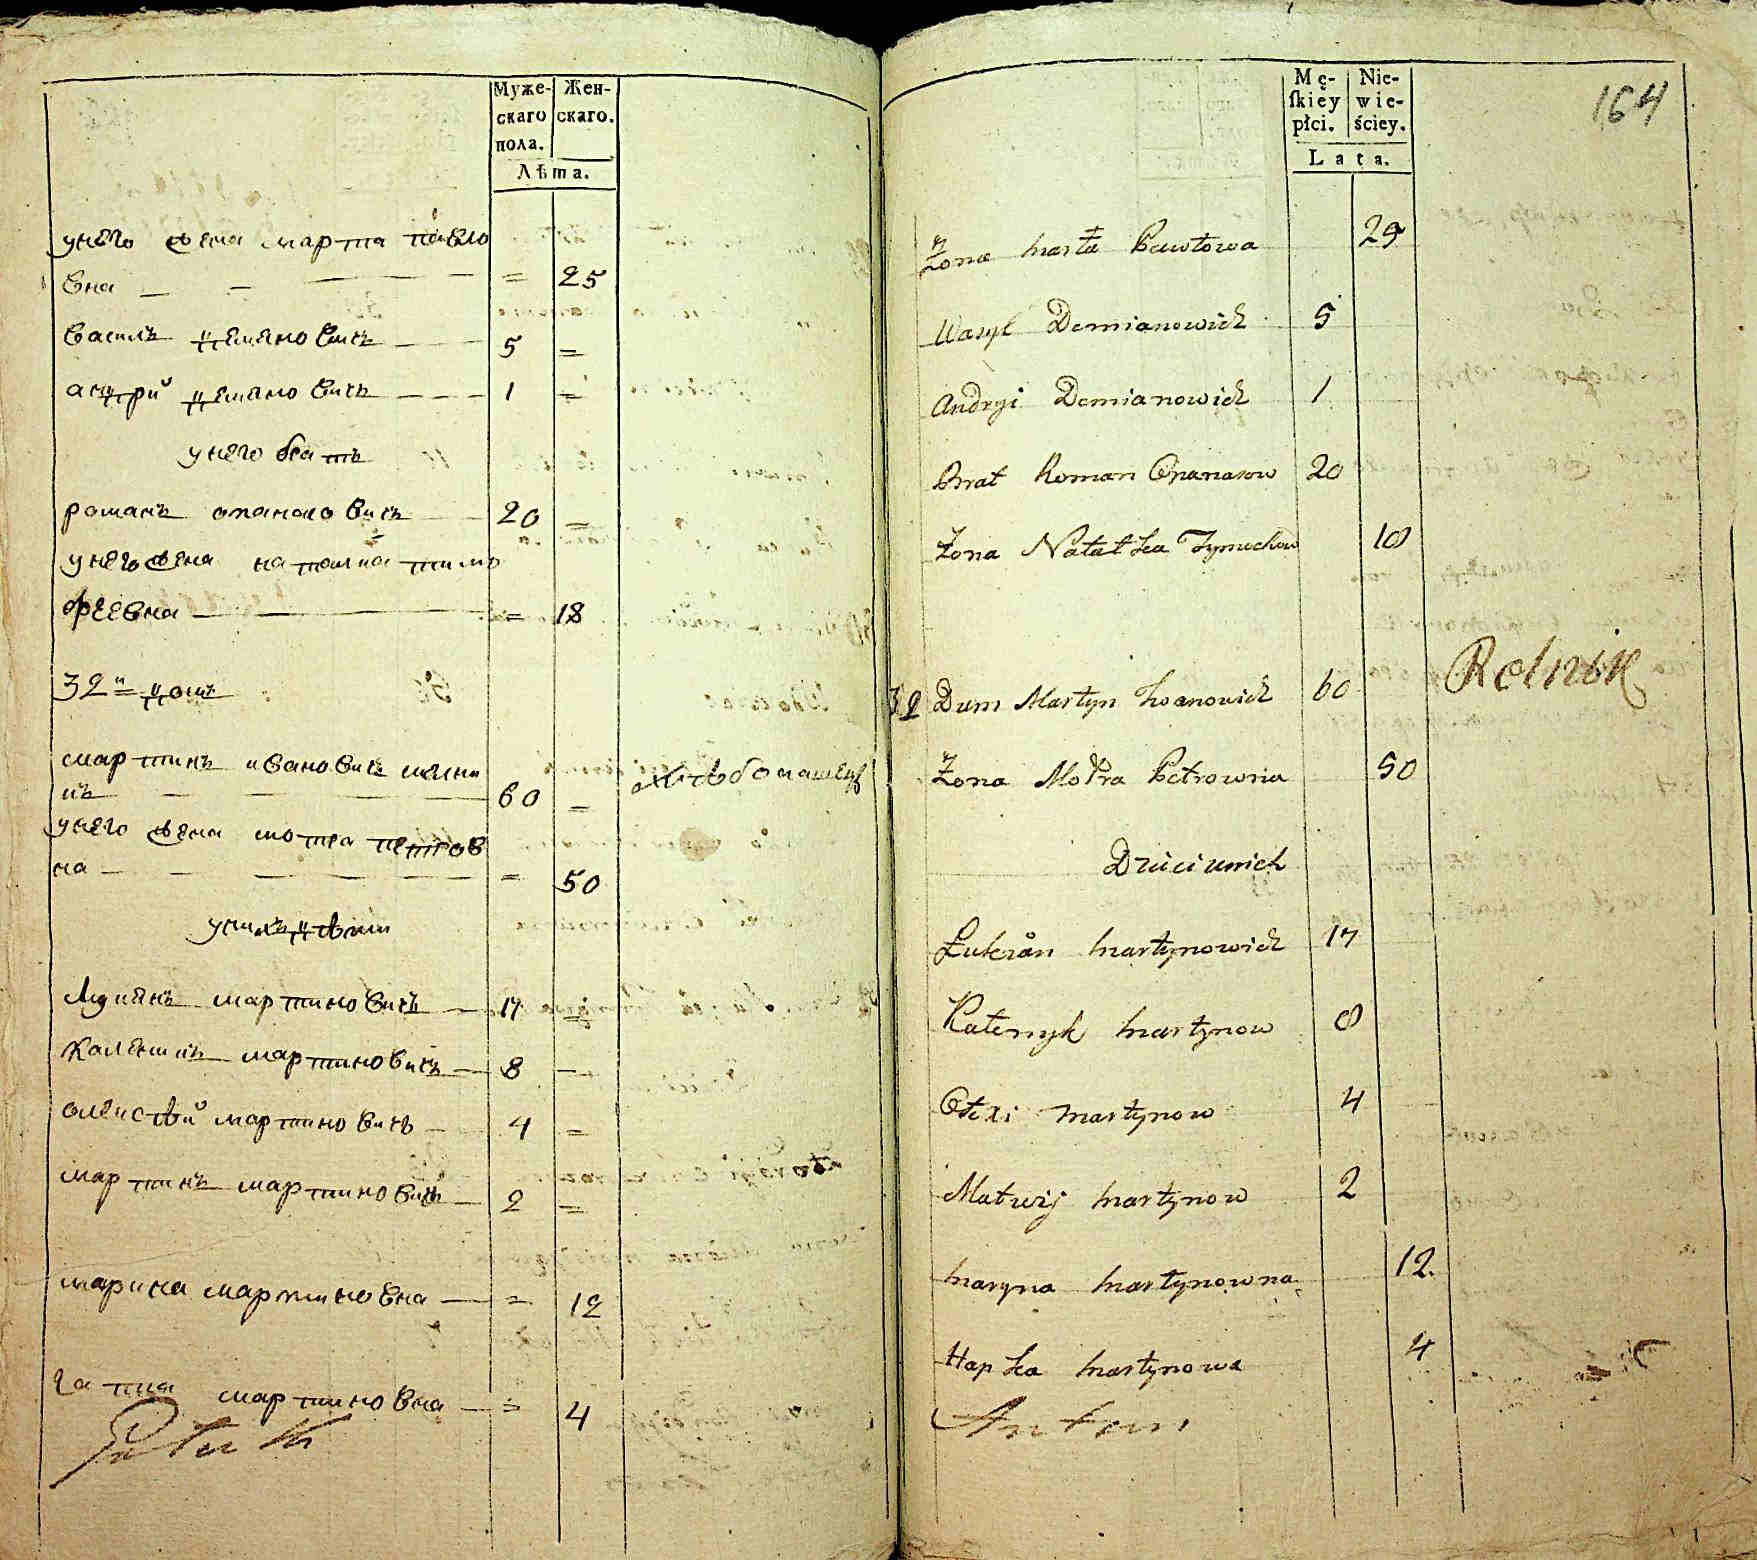 Муже-
скаго
пола.
Жен-
скаго.
Лѣта.
унего жена марта павло
вна — = 25
василь демянович — 5 =
андрій демянович — 1 =
унего братъ
романъ опанасович — 20 =
унего жена наталка тимо
феевна — = 18
32й домъ
мартинъ иванович
60 =
унего жена мотра петров
на — = 50
унихъ дѣти
лукянъ мартинович — 17 =
мартинович — 8 =
олексѣй мартинович — 4 =
мартинъ мартинович — 2 =
марина мартиновна — = 12
гапка мартиновна — = 4
164
Mę-
ſkiéy
płci.
Nie-
wie-
ściey.
Lata.
Żona Marta Pawłowa 25
Wasyl Demianowicz 5
Andryi Demianowicz 1
Brat Roman Opanasow 20
Żona Natałka 18
32 Dum Martyn Iwanowicz 60 Rolnik
Żona Motra Petrowna 50
Dzieci unich
Łukian Martynowicz 17
Martynow 8
Ołexi Martynow 4
Matwij Martynow 2
Maryna Martynowna 12.
Hapka Martynowa 4